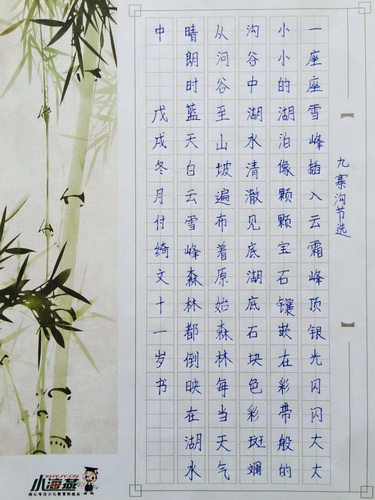 九寨沟节选
一座座雪峰插入云霜峰顶银光闪闪大大
小小的湖泊像颗颗宝石镶嵌在彩带般的
沟谷中湖水清澈见底湖底石块色彩斑斓
从河谷至山坡遍布着原始森林每当天气
晴朗时蓝天白云雪峰森林都倒映在湖水
中 戊戌冬月付绮文十一岁书
XHYJY.CN
小海燕